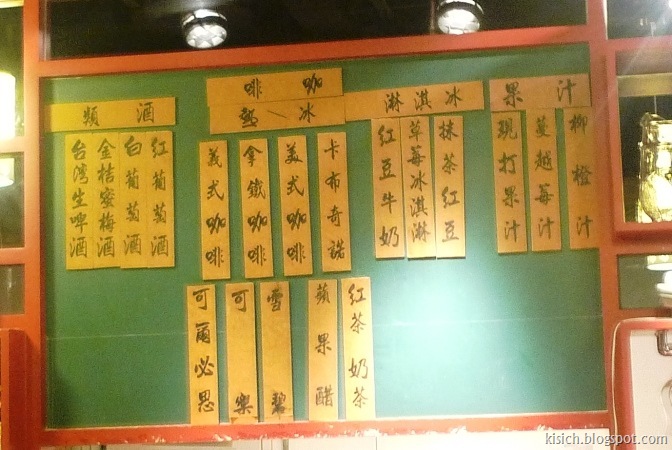 果汁
柳橙汁
蔓越莓汁
現打果汁
冰淇淋
抹茶紅豆
草莓冰淇淋
紅豆牛奶
咖啡
冰—熱
卡布奇諾
美式咖啡
拿鐵咖啡
義式咖啡
酒類
紅葡萄酒
白葡萄酒
金桔蜜梅酒
台湾生啤酒
紅茶奶茶
蘋果醋
雪碧
可樂
可爾必思
kisich.blogspot.com